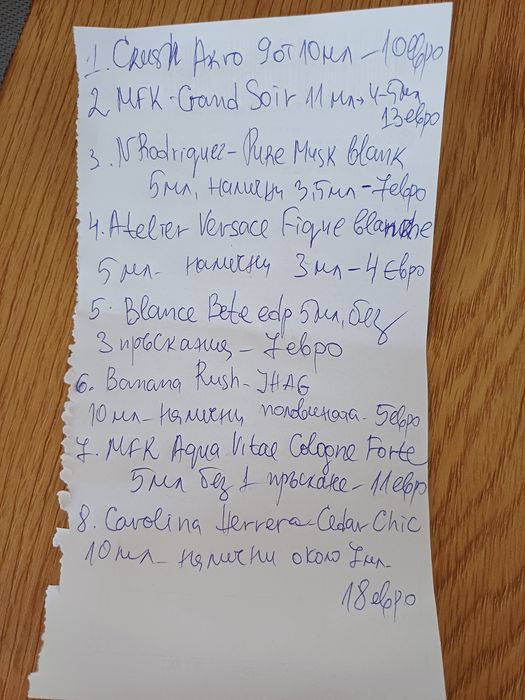 1. Crush Akro 9 от 10 мл – 10 евро
2 MFK - Grand Soir 11 мл → 4-5 мл
13 евро
3. N Rodriguez – Pure Musk blank
5 мл, налични 3,5 мл – 7 евро
4. Atelier Versace Figue blanche
5 мл – налични 3 мл – 4 евро
5. Blance Bete edp 5 мл, без
3 пръскания – 7 евро
6. Banana Rush – JHAG
10 мл – налични половината – 5 евро
7. MFK Aqua Vitae Cologne Forte
5 мл без 1 пръскане – 11 евро
8. Carolina Herrera – Cedar Chic
10 мл – налични около 7 мл –
18 евро